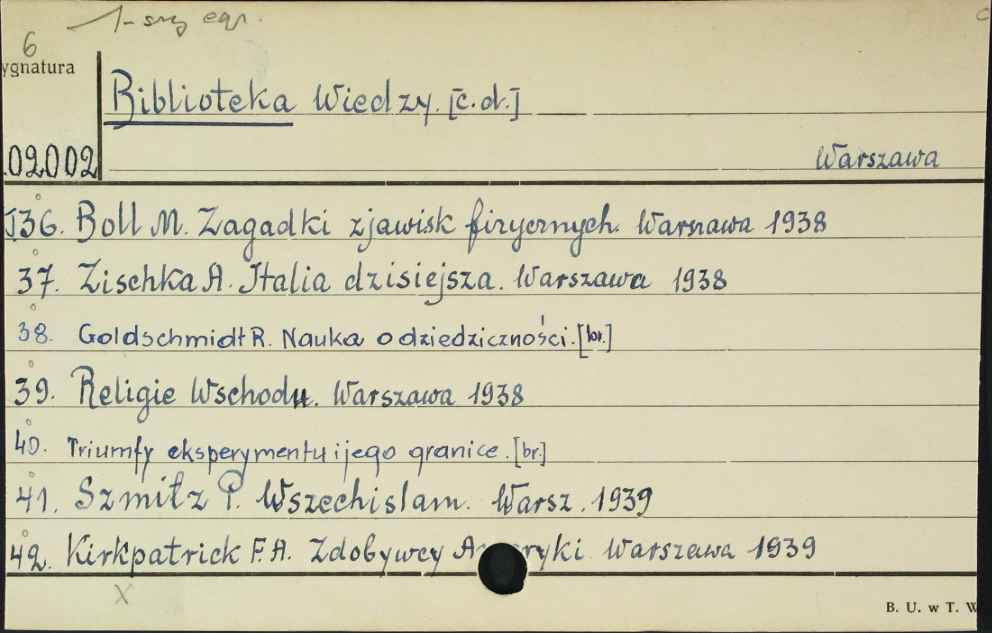 1-szy egz.
6
ygnatura
Biblioteka Wiedzy. [c.d.]
02002
Warszawa
T.36. Boll M. Zagadki zjawisk fizycznych. Warszawa 1938
37. Zischka A. Italia dzisiejsza. Warszawa 1938
38. Goldschmidt R. Nauka o dziedziczności. [br.]
39. Religie Wschodu. Warszawa 1938
40. Triumfy eksperymentu i jego granice. [br.]
41. Szmitz P. Wszechislam. Warsz. 1939
42. Kirkpatrick F.A. Zdobywcy A ryki. Warszawa 1939
X
B. U. w T. W